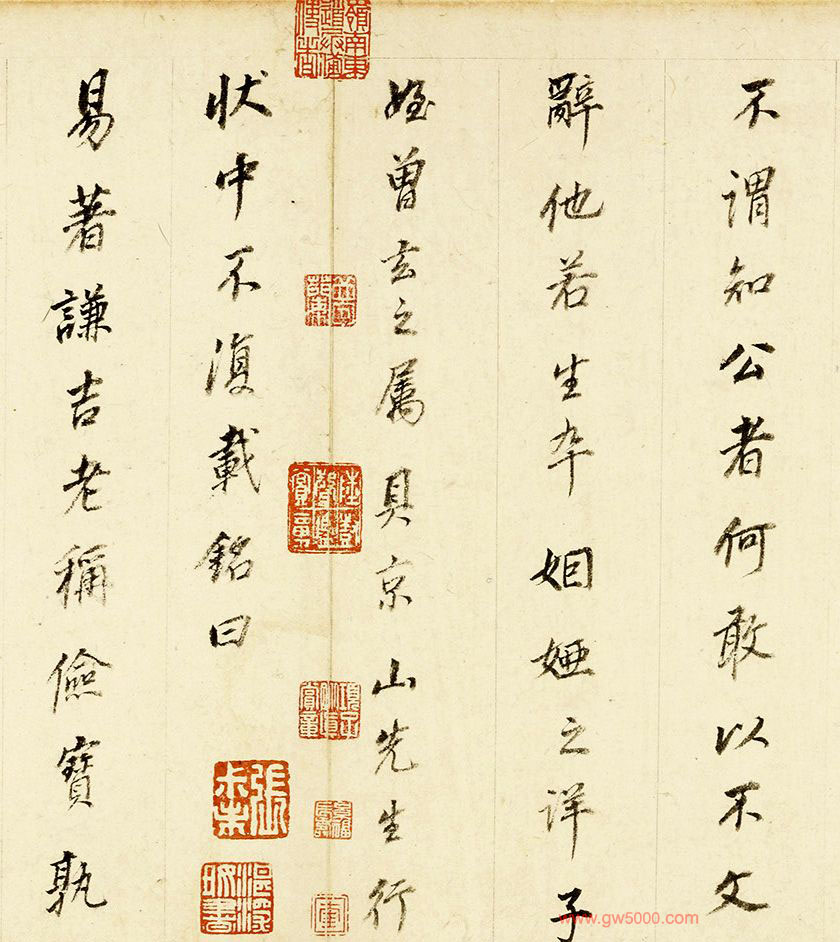 不謂知公者何敢以不文
辭他若生卒姻婭之詳子
姪曾玄之属具京山先生行
状中不復載銘曰
易著謙吉老稱儉寶孰
www.gw5000.com